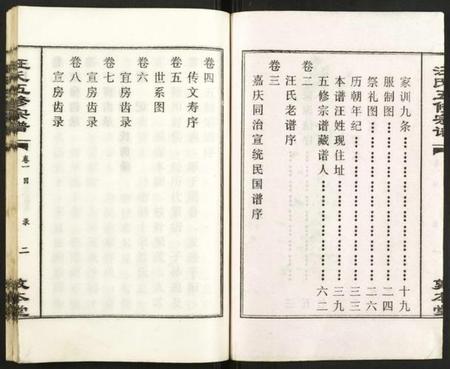 汪氏五修宗谱
家训九条……………………十九
服制图……………………二四
祭礼图……………………二六
历朝年纪……………………三三
本谱汪姓现住址……………………三九
五修宗谱藏谱人……………………六二
卷二
汪氏老谱序
卷三
嘉庆同治宣统民国谱序
卷四
传文寿序
卷五
世系图
卷六
宜房齿录
卷七
宜房齿录
卷八
宣房齿录
汪氏五修宗谱
卷一目 录 二
敦本堂